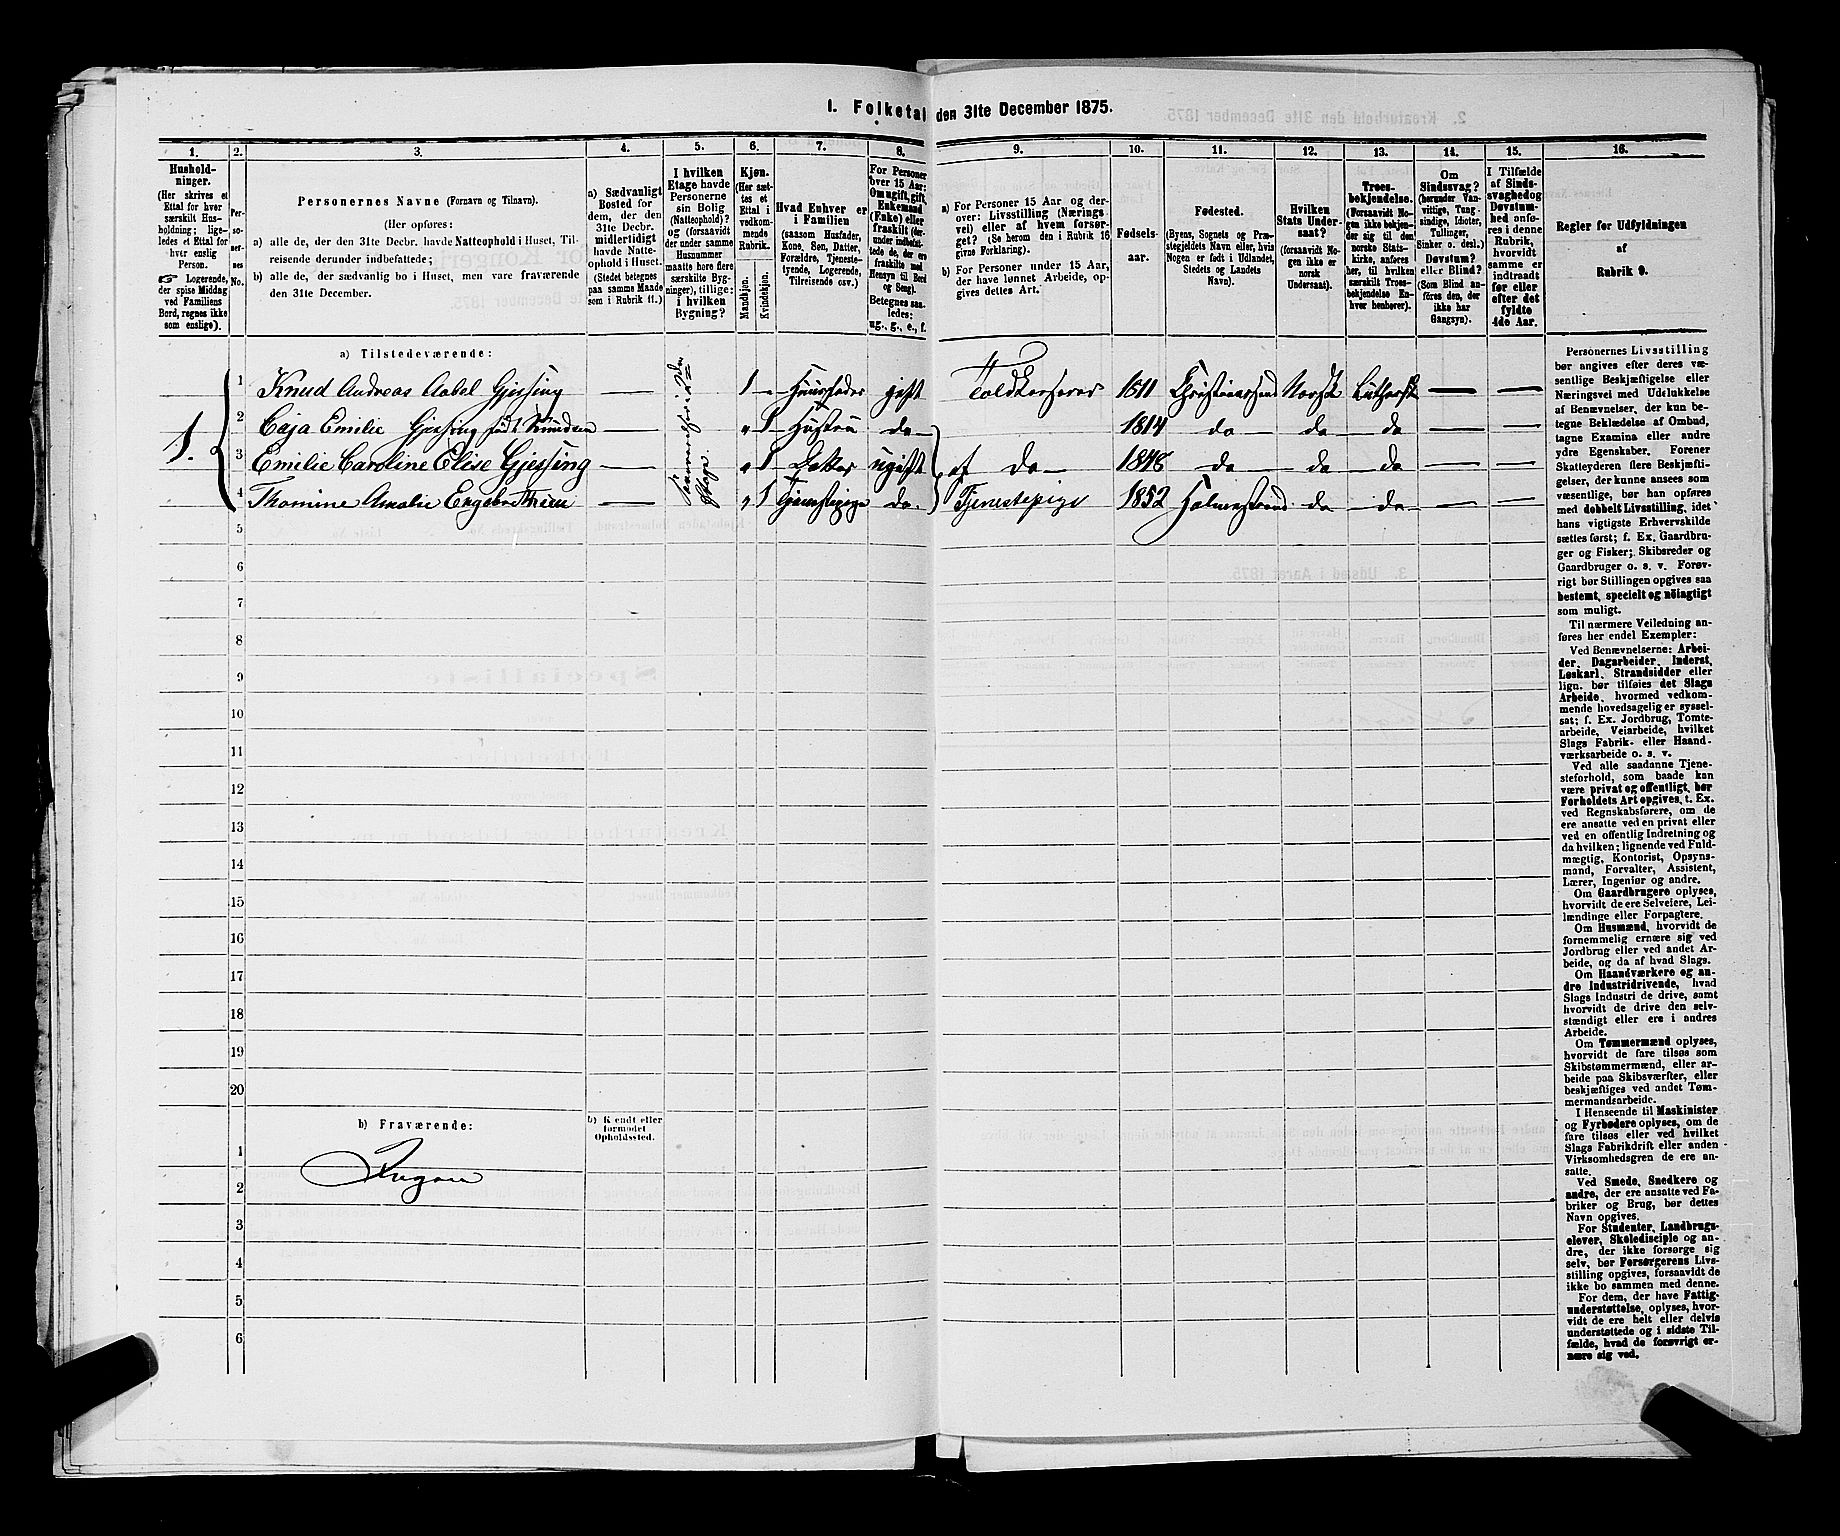 1. Folketal den 31te December 1875.
1. 2. 3. 4. 5. 6. 7. 8. 9. 10. 11. 12. 13. 14. 15. 16.
Hushold-
ninger.
(Her skrives et
Ettal for hver
særskilt Hus-
holdning; lige-
ledes et Ettal for
hver enslig
Person.
Logerende,
der spise Middag
ved Familiens
Bord, regnes ikke
som enslige).
Per-
so-
ner-
nes
No.
Personernes Navne (Fornavn og Tilnavn).
(Her opføres:
a) alle de, der den 31te Decbr. havde Natteophold i Huset, Til-
reisende derunder indbefattede;
b) alle de, der sædvanlig bo i Huset, men vare fraværende
den 31te December.
a) Sædvanligt
Bosted for
dem, der den
31te Decbr.
midlertidigt
havde Natte-
ophold i Huset.
(Stedet betegnes
paa samme Maade
som i Rubrik 11.)
I hvilken
Etage havde
Personerne
sin Bolig
(Natteophold)?
og (forsaavidt
der under samme
Husnummer
maatte høre flere
særskilte Byg-
ninger), tillige:
i hvilken
Bygning?
Kjøn.
(Her sæt-
tes et
Ettal i
vedkom-
mende
Rubrik.
Mandkjøn.
Kvindekjøn.
Hvad Enhver er
i Familien
(saasom Husfader,
Kone, Søn, Datter,
Forældre, Tjeneste-
tyende, Logerende,
Tilreisende osv.)
For Personer
over 15 Aar:
Om ugift, gift,
Enkemand
(Enke) eller
fraskilt (der-
under indbefat-
tede de, der ere
fraskilte med
Hensyn til Bord
og Seng).
Betegnes saa-
ledes:
ug., g., e., f.
a) For Personer 15 Aar og der-
over: Livsstilling (Nærings-
vei) eller af hvem forsør-
get? (Se herom den i Rubrik 16
givne Forklaring).
b) For Personer under 15 Aar,
der have lønnet Arbeide, op-
gives dettes Art.
Fødsels-
aar.
Fødested.
(Byens, Sognets og Præ-
stegjeldets Navn eller, hvis
Nogen er født i Udlandet,
Stedets og Landets
Navn).
Hvilken
Stats Under-
saat?
(forsaavidt No-
gen ikke er
norsk
Undersaat).
Troes-
bekjendelse.
(Forsaavidt No-
gen ikke bekjen-
der sig til den
norske Stats-
kirke, anføres
her, til hvilken
særskilt Troes-
bekjendelse En-
hver henhører).
Om
Sindssvag?
(herunder Van-
vittige, Tung-
sindige, Idioter,
Tullinger,
Sinker o. desl.)
Døvstum?
eller Blind?
(Som Blind an-
føres den, der
ikke har
Gangsyn).
I Tilfælde
af Sinds-
svaghed og
Døvstum-
hed anfø-
res i denne
Rubrik,
hvorvidt
samme er
indtraadt
før eller
efter det
fyldte
4de Aar.
Regler for Udfyldningen
af
Rubrik 9.
a) Tilstedeværende:
1.
1 Knud Andreas Aabel Gjessing — 1 " Huusfader gift Toldkasserer 1811 Christianssand Norsk Luthersk — —
2 Caja Emilie Gjessing født Knudsen — " 1 Hustru do 1814 do do do — —
3 Emilie Caroline Elise Gjessing — " 1 Datter ugift af do 1848 do do do — —
4 Thomine Amalie Engebrethsen — " 1 Tjenestepige do. Tjenestepige 1852 Holmestrand do do — —
5
6
7
8
9
10
11
12
13
14
15
16
17
18
19
20
b) Fraværende:
b) Kjendt eller
formodet
Opholdssted.
1 Ingen
2
3
4
5
6
Personernes Livsstilling
bør angives efter deres væ-
sentlige Beskjæftigelse eller
Næringsvei med Udelukkelse
af Benævnelser, der kun be-
tegne Beklædelse af Ombud,
tagne Examina eller andre
ydre Egenskaber. Forener
Skatteyderen flere Beskjæfti-
gelser, der kunne ansees som
væsentlige, bør han opføres
med dobbelt Livsstilling, idet
hans vigtigste Erhvervskilde
sættes først; f. Ex. Gaardbru-
ger og Fisker; Skibsreder og
Gaardbruger o. s. v. Forøv-
rigt bør Stillingen opgives saa
bestemt, specielt og nøiagtigt
som muligt.
Til nærmere Veiledning an-
føres her endel Exempler:
Ved Benævnelserne: Arbei-
der, Dagarbeider, Inderst,
Løskarl, Strandsidder eller
lign. bør tilføies det Slags
Arbeide, hvormed vedkom-
mende hovedsagelig er syssel-
sat; f. Ex. Jordbrug, Tomte-
arbeide, Veiarbeide, hvilket
Slags Fabrik- eller Haand-
værksarbeide o. s. v.
Ved alle saadanne Tjene-
steforhold, som baade kan
være privat og offentligt, bør
Forholdets Art opgives, t. Ex.
ved Regnskabsførere, om de
ere ansatte ved en privat eller
ved en offentlig Indretning og
da hvilken; lignende ved Fuld-
mægtig, Kontorist, Opsyns-
mand, Forvalter, Assistent,
Lærer, Ingeniør og andre.
Om Gaardbrugere oplyses,
hvorvidt de ere Selveiere, Lei-
lændinge eller Forpagtere.
Om Husmænd, hvorvidt de
fornemmelig ernære sig ved
Jordbrug eller ved andet Ar-
beide, og da af hvad Slags.
Om Haandværkere og an-
dre Industridrivende, hvad
Slags Industri de drive, samt
hvorvidt de drive den selv-
stændigt eller ere i andres
Arbeide.
Om Tømmermænd oplyses,
hvorvidt de fare tilsøs som
Skibstømmermænd, eller ar-
beide paa Skibsværfter, eller
beskjæftiges ved andet Tøm-
mermandsarbeide.
I Henseende til Maskinister
og Fyrbødere oplyses, om de
fare tilsøs eller ved hvilket
Slags Fabrikdrift eller anden
Virksomhedsgren de ere an-
satte.
Ved Smede, Snedkere og
andre, der ere ansatte ved Fa-
briker og Brug, bør dettes
Navn opgives.
For Studenter, Landbrugs-
elever, Skoledisciple og an-
dre, der ikke forsørge sig
selv, bør Forsørgerens Livs-
stilling opgives, forsaavidt de
ikke bo sammen med denne.
For dem, der have Fattig-
understøttelse, oplyses, hvor-
vidt de ere helt eller delvis
understøttede og i sidste Til-
fælde, hvad de forøvrigt er-
nære sig ved.